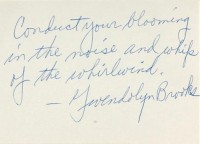 Conduct your blooming
in the noise and whip
of the whirlwind.
— Gwendolyn Brooks